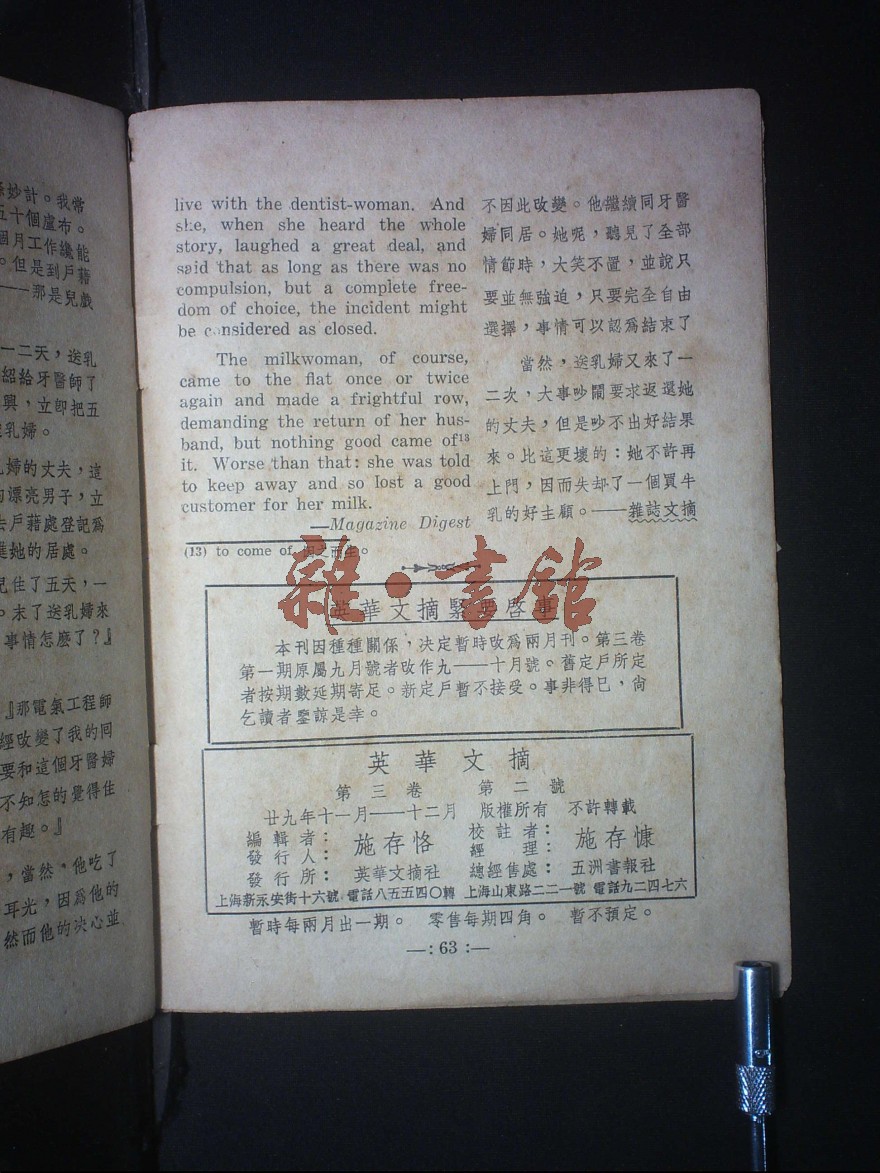 糸妙計。我常
五十個盧布。
個月工作纔能
。但是到戶籍
——那是兒戲
一二天，送乳
紹給牙醫師了
興，立卽把五
送乳婦。
乳婦的丈夫，這
的漂亮男子，立
去戶籍處登記爲
進她的居處。
兒住了五天，一
。末了送乳婦來
事情怎麽了？』
『那電氣工程師
經改變了我的囘
要和這個牙醫婦
不知怎的覺得住
有趣。』
，當然，他吃了
耳光，因爲他的
然而他的決心並
live with the dentist-woman. And
she, when she heard the whole
story, laughed a great deal, and
said that as long as there was no
compulsion, but a complete free-
dom of choice, the incident might
be considered as closed.
The milkwoman, of course,
came to the flat once or twice
again and made a frightful row,
demanding the return of her hus-
band, but nothing good came of¹³
it. Worse than that: she was told
to keep away and so lost a good
customer for her milk.
—Magazine Digest
(13) to come of, 因之而生。
不因此改變。他繼續同牙醫
婦同居。她呢，聽見了全部
情節時，大笑不置，並說只
要並無強迫，只要完全自由
選擇，事情可以認爲結束了
當然，送乳婦又來了一
二次，大事吵鬧要求返還她
的丈夫，但是吵不出好結果
來。比這更壞的：她不許再
上門，因而失却了一個買牛
乳的好主顧。——雜誌文摘
雜·書館
英華文摘緊要啓事
本刊因種種關係，决定暫時改爲兩月刊。第三卷
第一期原屬九月號者改作九——十月號。舊定戶所定
者按期數延期寄足。新定戶暫不接受。事非得已，尙
乞讀者鑒諒是幸。
英華文摘
第三卷 第二號
廿九年十一月——十二月 版權所有 不許轉載
編輯者：
發行人： 施存恪
校註者：
經理： 施存慷
發行所： 英華文摘社 總經售處： 五洲書報社
上海新永安街十六號 電話八五五四〇轉 上海山東路二二一號 電話九二四七六
暫時每兩月出一期。 零售每期四角。 暫不預定。
—: 63 :—